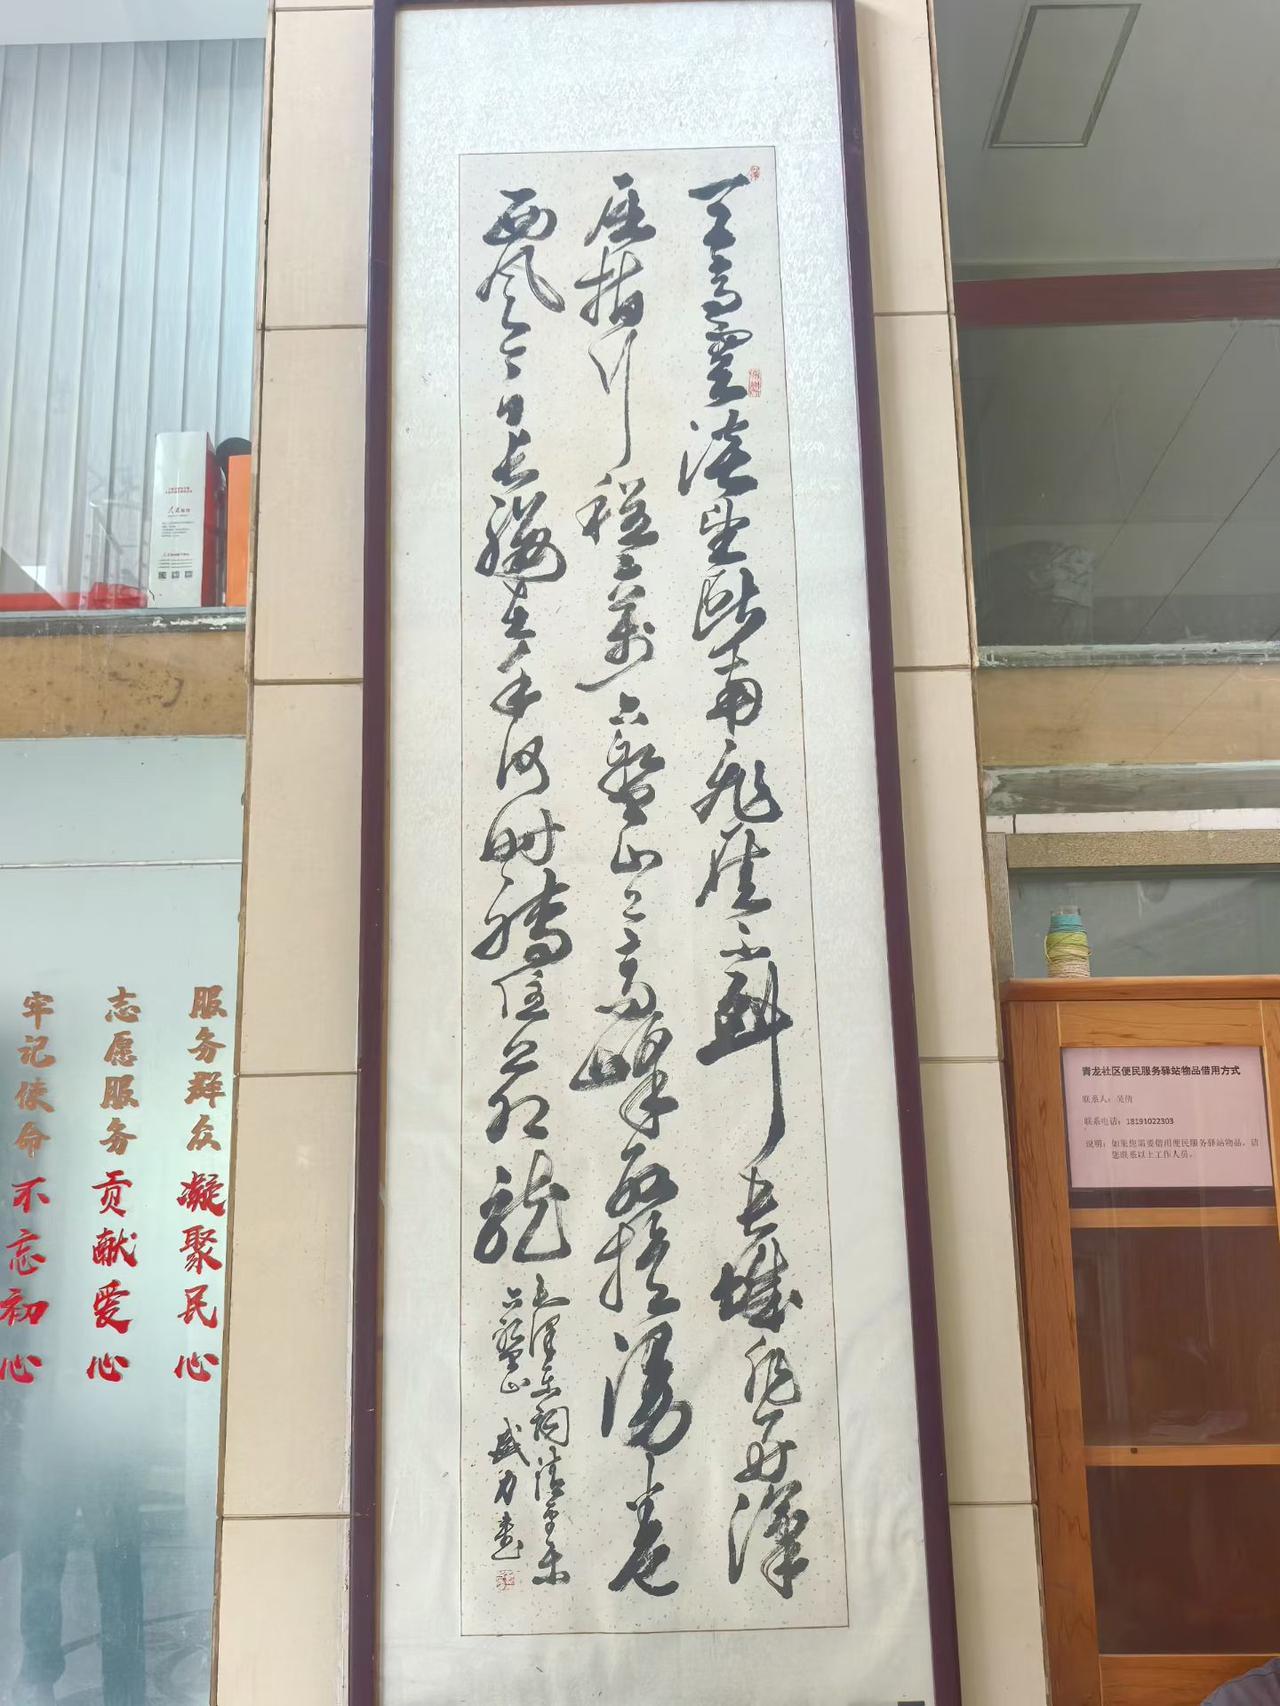 天高雲淡望断南飛雁不到長城非好漢
屈指行程二萬六盤山上高峰紅旗漫卷
西風今日長纓在手何時縛住蒼龍
毛澤東詞清平樂
六盤山 盛力書
服务群众 凝聚民心
志愿服务 贡献爱心
牢记使命 不忘初心
青龙社区便民服务驿站物品借用方式
联系人：吴倩
联系电话：18191022303
说明：如果您需要借用便民服务驿站物品，请
您联系以上工作人员。